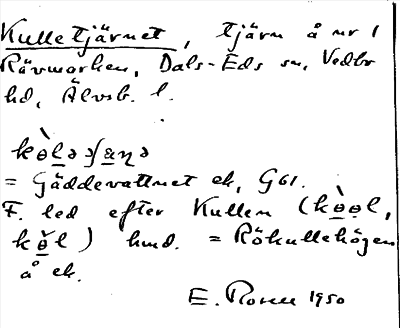 Kulletjärnet, tjärn å nr 1
Rävmarken, Dals-Eds sn, Vedbo
hd, Älvsb. l.
kɵ̀lə ʃæ̠ɳə
= Gäddevattnet ek, G61.
F. led efter Kullen (kɵ̀ɵl,
kɵ̆l) hmd. = Rökullehögen
å ek.
E. Rosell 1950